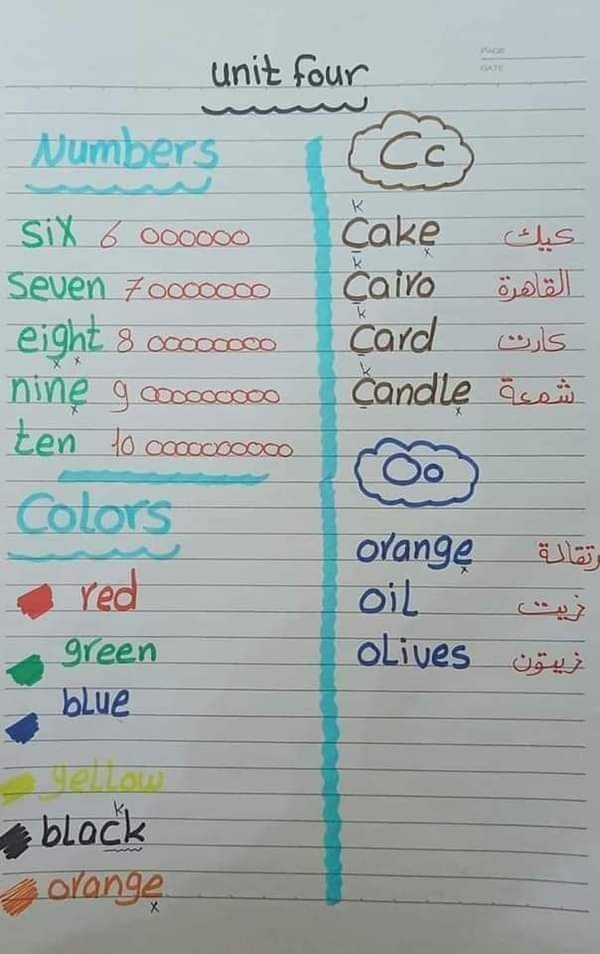 PAGE
DATE
unit four
Numbers
six 6
seven 7
eight 8
nine 9
ten 10
Colors
red
green
blue
yellow
k
black
orange
Cc
k
Cake كيك
k
Cairo القاهرة
k
Card كارت
k
Candle شمعة
Oo
orange رتقالة
oil زيت
olives زيتون